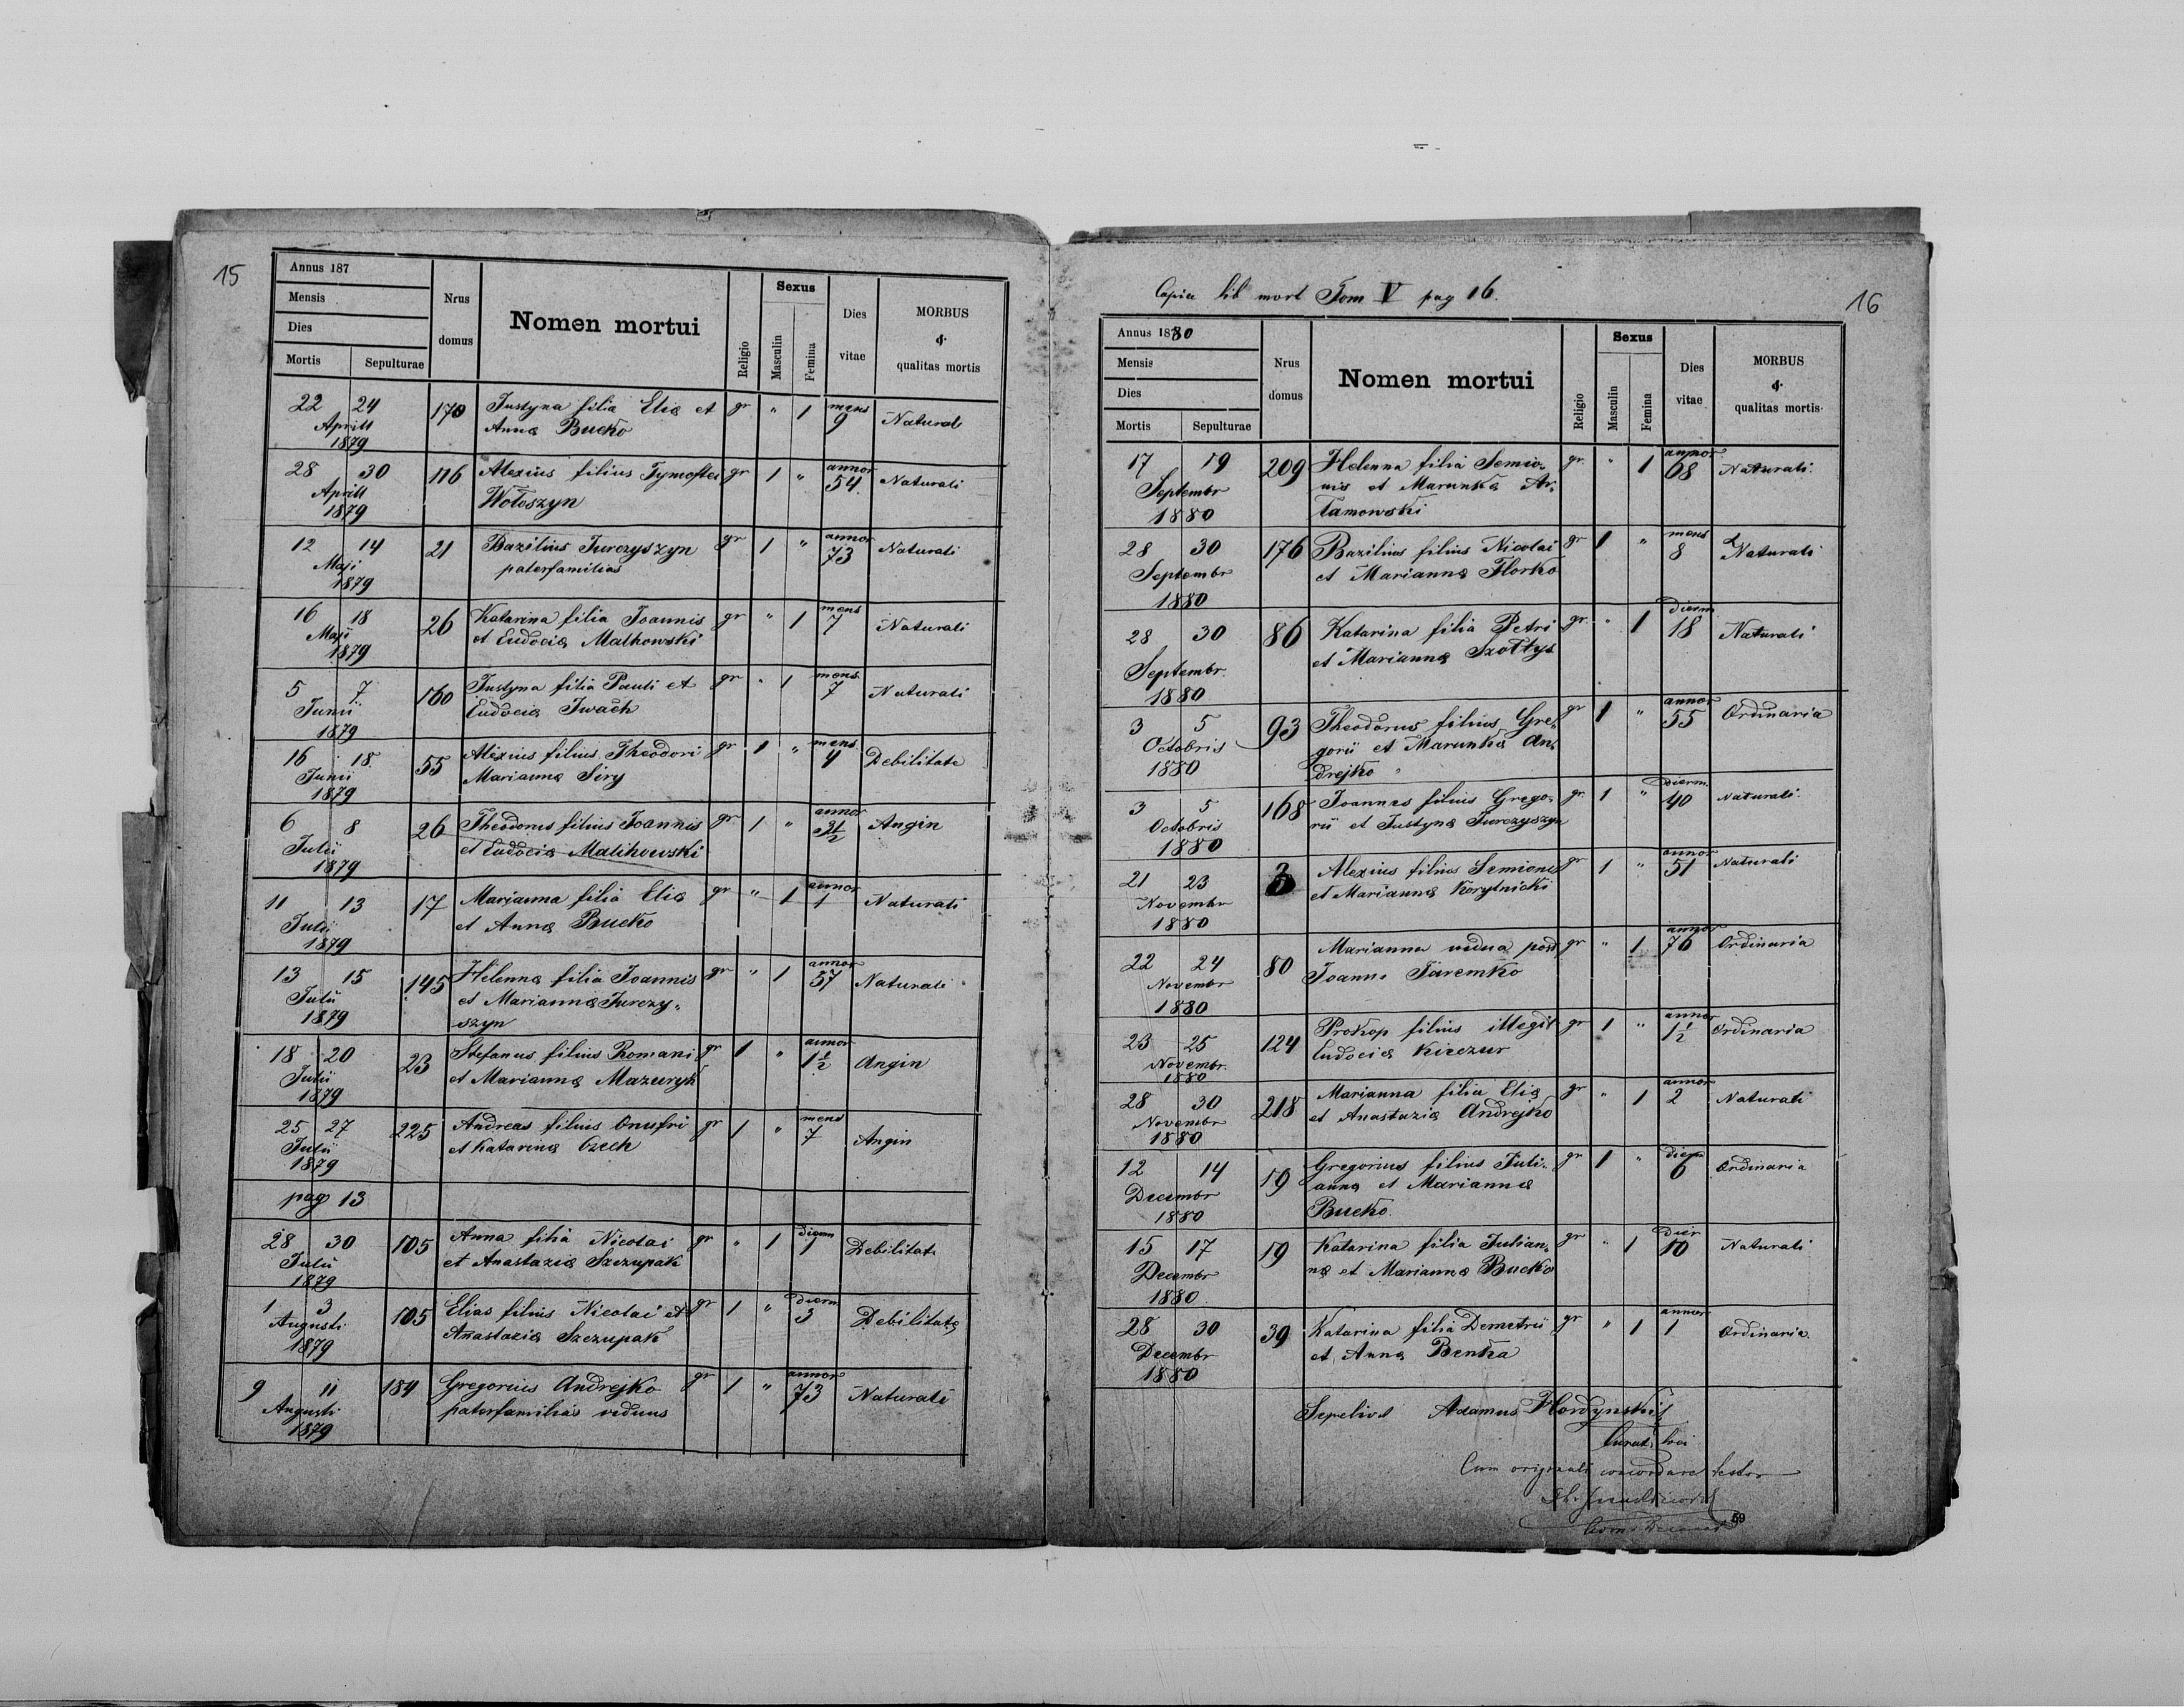 15
Annus 187
Mensis
Dies
Mortis Sepulturae
Nrus domus
Nomen mortui
Religio
Sexus
Masculin
Femina
Dies vitae
MORBUS
&
qualitas mortis
22 24 170 Justyna filia Eliæ et gr " 1 mens 9 Naturali
Aprill Annæ Bucko
1879
28 30 116 Alexius filius Tymoftei gr 1 " annor 54 Naturali
Aprill Wołoszyn
1879
12 14 21 Bazilius Jurczyszyn gr 1 " annor 73 Naturali
Maji paterfamilias
1879
16 18 26 Katarina filia Joannis gr " 1 mens 7 Naturali
Maji et Eudociæ Malkowski
1879
5 7 160 Justyna filia Pauli et gr " 1 mens 7 Naturali
Junii Eudociæ Iwach
1879
16 18 55 Alexius filius Theodori gr 1 " mens 4 Debilitate
Junii Mariannæ Siry
1879
6 8 26 Theodorus filius Joannis gr 1 " annor Angin
Julii et Eudociæ Malikowski
1879
11 13 17 Marianna filia Eliæ gr " 1 annor 1 Naturali
Julii et Annæ Bucko
1879
13 15 145 Helenna filia Joannis gr " 1 annor 57 Naturali
Julii et Mariannæ Jurczy„
1879 szyn
18 20 23 Stefanus filius Romani gr 1 " annor 1½ Angin
Julii et Mariannæ Mazuryk
1879
25 27 225 Andreas filius Onufri gr 1 " mens 7 Angin
Julii et Katarinæ Czech
1879
pag 13
28 30 105 Anna filia Nicolai gr " 1 dierm 1 Debilitate
Julii et Anastaziæ Szczupak
1879
1 3 105 Elias filius Nicolai et gr 1 " dierm 3 Debilitate
Augusti Anastaziæ Szczupak
1879
9 11 184 Gregorius Andrejko gr 1 " annor 73 Naturali
Augusti paterfamilias viduus
1879
Copia lib mort Tom V pag 16.
16
Annus 1880
Mensis
Dies
Mortis Sepulturae
Nrus domus
Nomen mortui
Religio
Sexus
Masculin
Femina
Dies vitae
MORBUS
&
qualitas mortis
17 19 209 Helenna filia Semio„ gr " 1 annor 68 Naturali
Septembr nis et Marunkæ Ar„
1880 tamowski
28 30 176 Bazilius filius Nicolai gr 1 " mens 8 Naturali
Septembr et Mariannæ Florko
1880
28 30 86 Katarina filia Petri gr " 1 dierm 18 Naturali
Septembr et Mariannæ Szołtys
1880
3 5 93 Theodorus filius Gre„ gr 1 " annor 55 Ordinaria
Octobris gorii et Marunkæ An„
1880 drejko
3 5 168 Joannes filius Grego„ gr 1 " dierm 40 Naturali
Octobris rii et Justynæ Jurczyszyn
1880
21 23 3 Alexius filius Semionis gr 1 " annor 51 Naturali
Novembr et Mariannæ Korytnicki
1880
22 24 80 Marianna vidua post gr " 1 annor 76 Ordinaria
Novembr Joanne Jaremko
1880
23 25 124 Prokop filius illegit gr 1 " annor 1½ Ordinaria
Novembr Eudociæ Kiczur
1880
28 30 218 Marianna filia Eliæ gr " 1 annor 2 Naturali
Novembr et Anastaziæ Andrejko
1880
12 14 19 Gregorius filius Juli„ gr 1 " dierm 6 Ordinaria
Decembr annæ et Mariannæ
1880 Bucko
15 17 19 Katarina filia Julian„ gr " 1 dier 10 Naturali
Decembr næ et Mariannæ Bucko
1880
28 30 39 Katarina filia Demetrii gr " 1 annor 1 Ordinaria
Decembr et Annæ Benka
1880
Sepelivit Adamus Hordynski
Curat. loci
Cum originali concordare testor
59